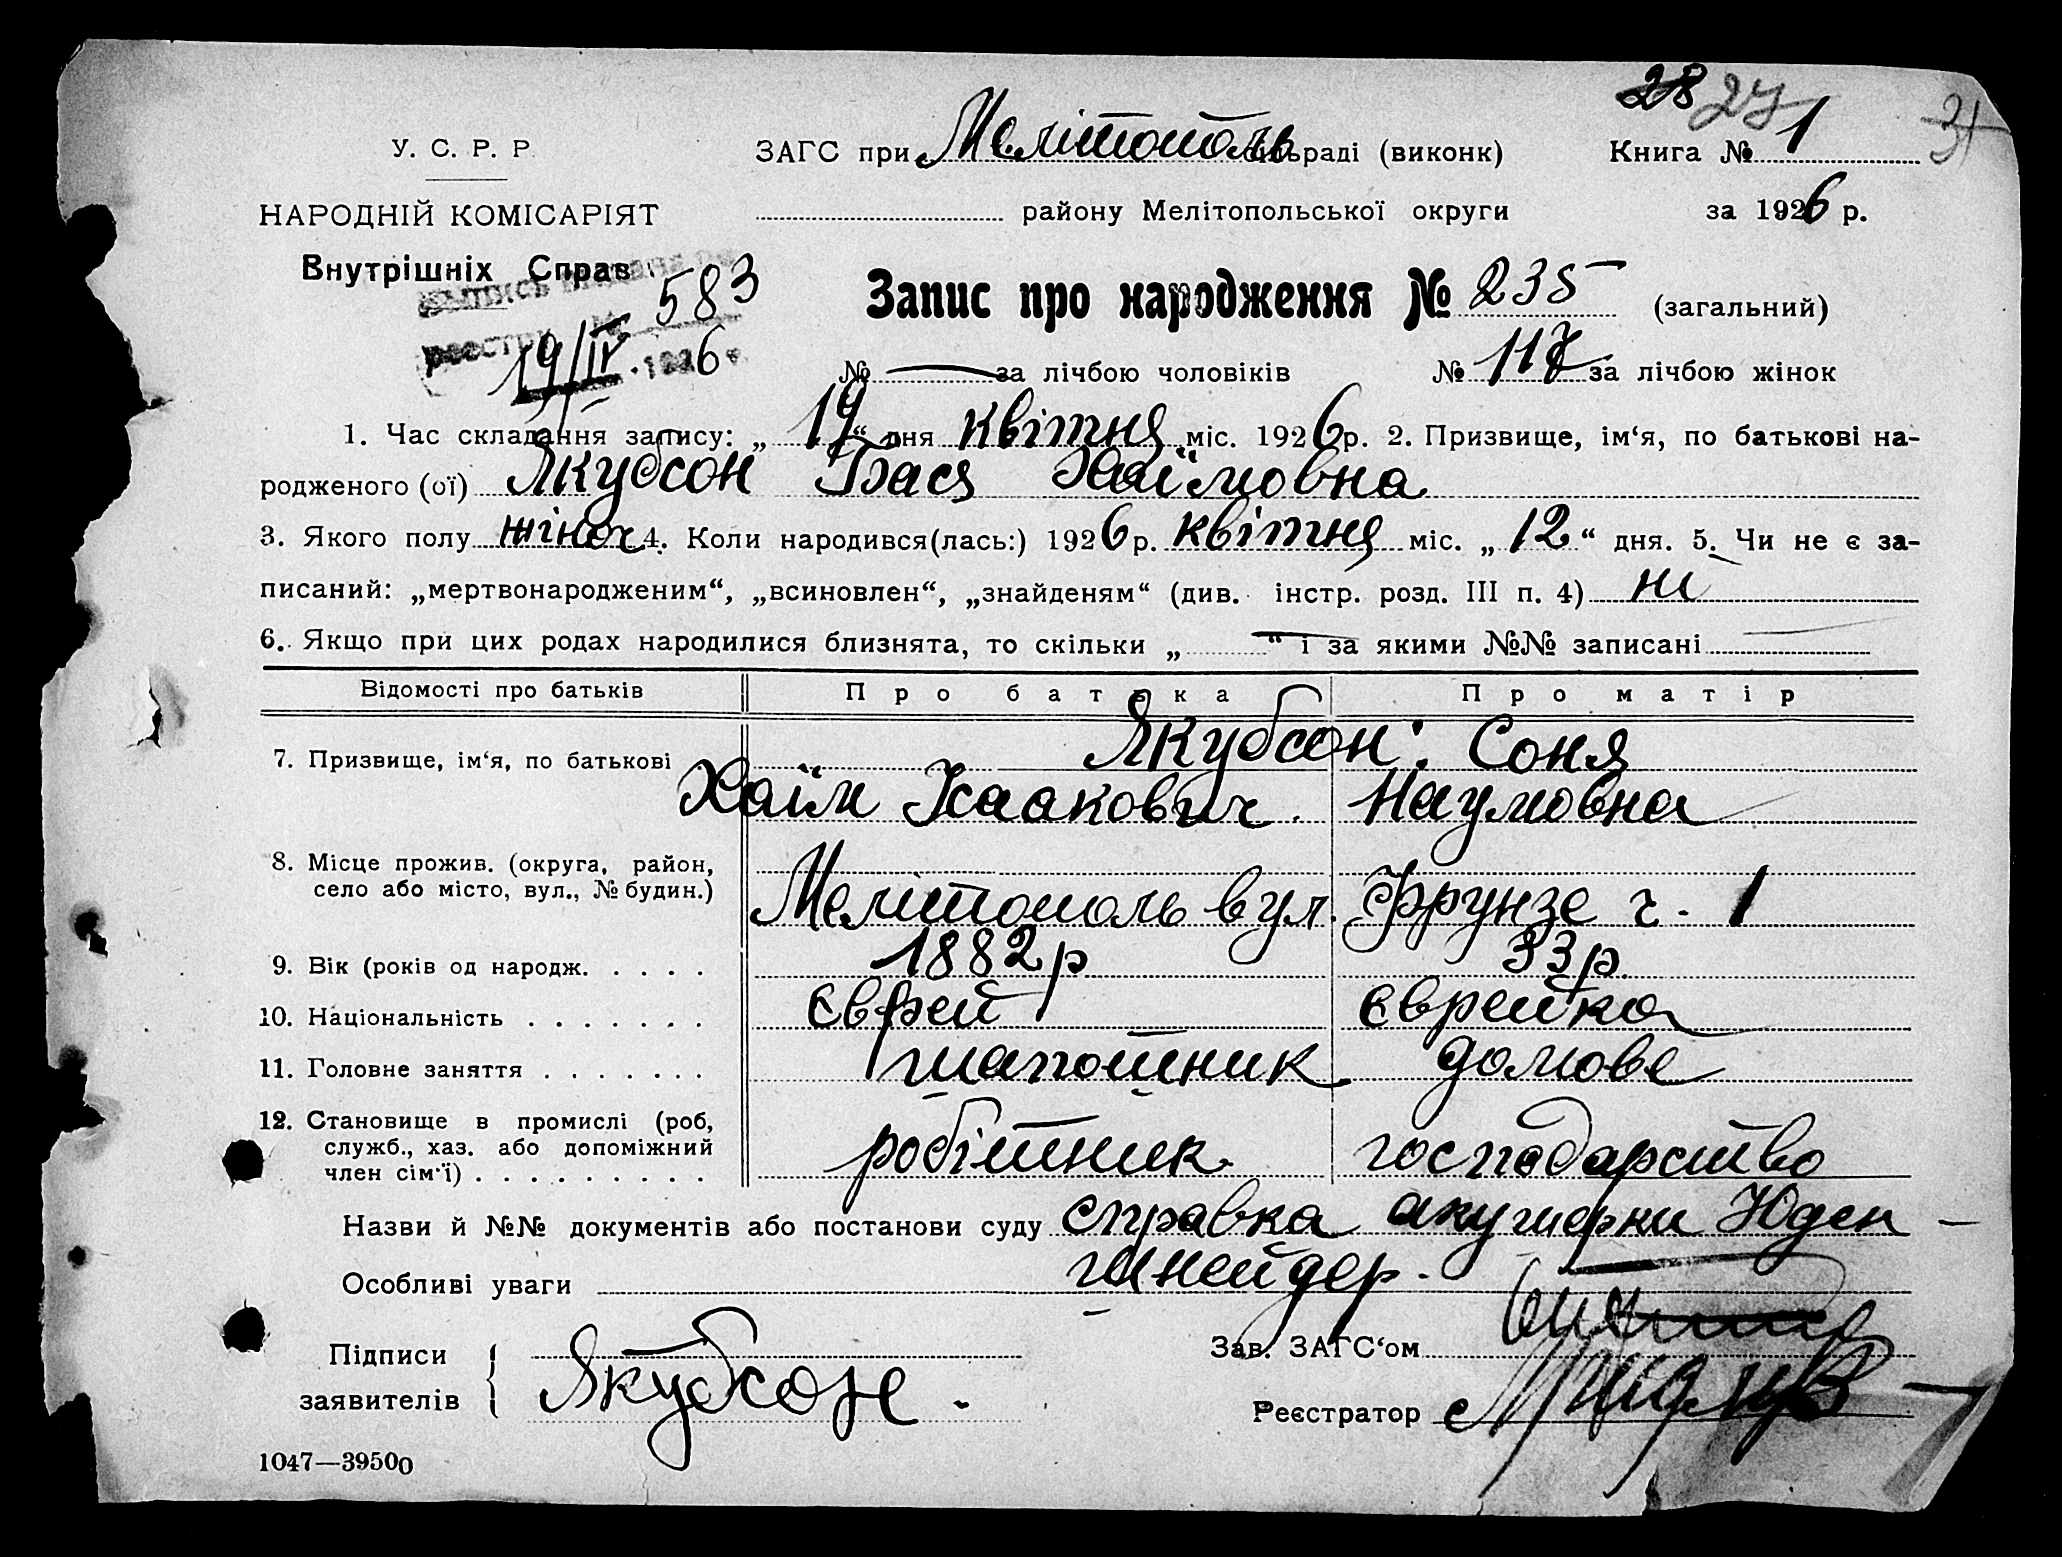 28 27 31
У. С. Р. Р.
ЗАГС при Мелітополь сільраді (виконк)
Книга № 1
НАРОДНІЙ КОМІСАРІЯТ
району Мелітопольської округи
за 1926 р.
Внутрішніх Справ
583
реестру №
19/IV 1926 г.
Запис про народження № 235 (загальний)
№ — за лічбою чоловіків № 117 за лічбою жінок
1. Час складання запису: „19“ дня квітня міс. 1926 р. 2. Призвище, ім‘я, по батькові на-
родженого (ої) Якубсон Бася Хаїмовна
3. Якого полу жіноч 4. Коли народився(лась:) 1926 р. квітня міс. „12“ дня. 5. Чи не є за-
писаний: „мертвонародженим“, „всиновлен“, „знайденям“ (див. інстр. розд. III п. 4) ні
6. Якщо при цих родах народилися близнята, то скільки „ — “ і за якими №№ записані —
Відомості про батьків Про батька Про матір
7. Призвище, ім‘я, по батькові Якубсон: Соня
Хаїм Ісаакович. Наумовна
8. Місце прожив. (округа, район,
село або місто, вул., № будин.)
Мелітополь вул. Фрунзе ч. 1
9. Вік (років од народж. . . . . 1882 р 33 р.
10. Національність . . . . . . . єврей єврейка
11. Головне заняття . . . . . . . шапошник домове
12. Становище в промислі (роб,
служб., хаз. або допоміжний
член сім‘ї) . . . . . . . . . робітник. господарство
Назви й №№ документів або постанови суду справка акушерки Юден-
шнейдер.
Особливі уваги
Підписи
заявителів
Якубсон.
Зав. ЗАГС‘ом
Реєстратор
1047—39500